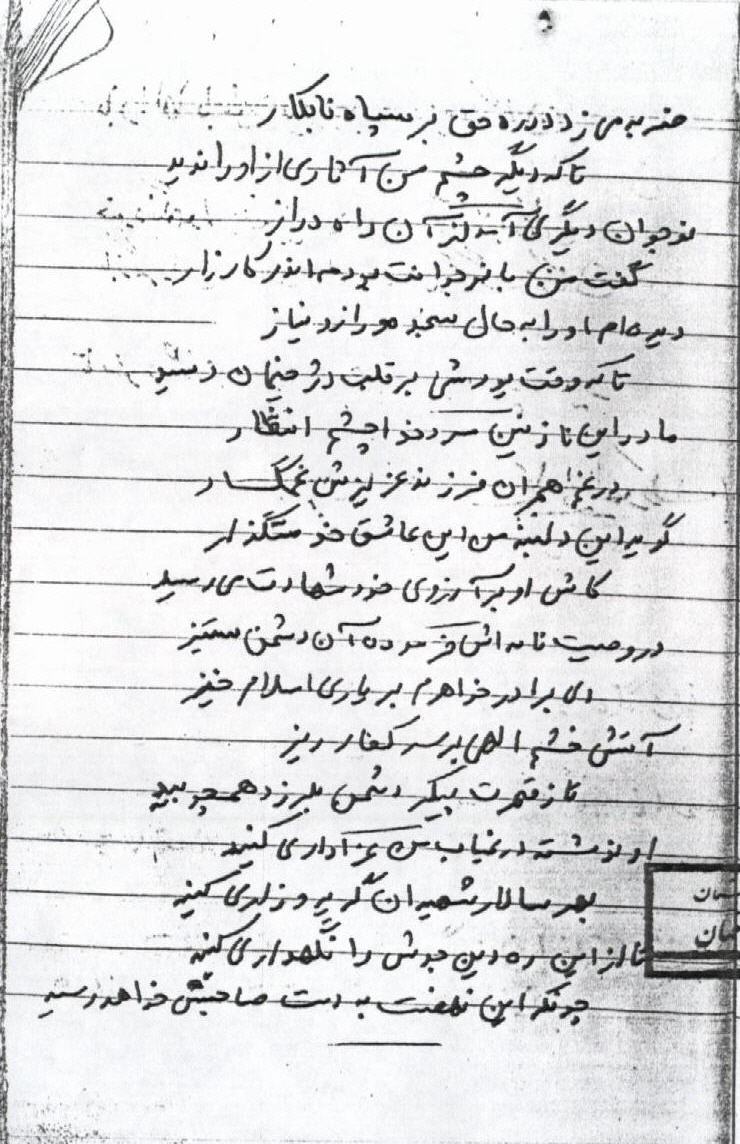 ضربه می زد در ره حق بر سپاه نابکار
تا که دیگر چشم من آثاری از او را ندید
نوجوان دیگری آمد از آن راه دراز
گفت من با نوجوانت بوده ام اندر کارزار
دیده ام او را به حال سجده و راز و نیاز
تا که وقت یورشی بر قلب دژخیمان رسید
مادر این نازنین سرو خوا چشم انتظار
در غم هجران فرزند عزیزش غمگسار
گوید این دلبند من این عاشق خدمتگذار
کاش او بر آرزوی خود شهادت می رسید
در وصیت نامه اش فرموده آن دشمن ستیز
ای برادر خواهرم بر یاری اسلام خیز
آتش خشم الهی بر سر کفار ریز
تا ز قهرت پیکر دشمن بلرزد همچو بید
او نوشته در غیاب من عزاداری کنید
بهر سالار شهیدان گریه و زاری کنید
تا از این ره دین جدش را نگهداری کنید
چونکه این نهضت به دست صاحبش خواهد رسید